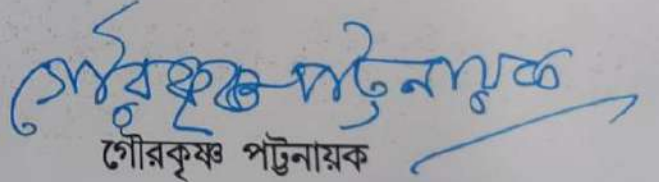 গৌরকৃষ্ণ পট্টনায়ক
গৌরকৃষ্ণ পট্টনায়ক